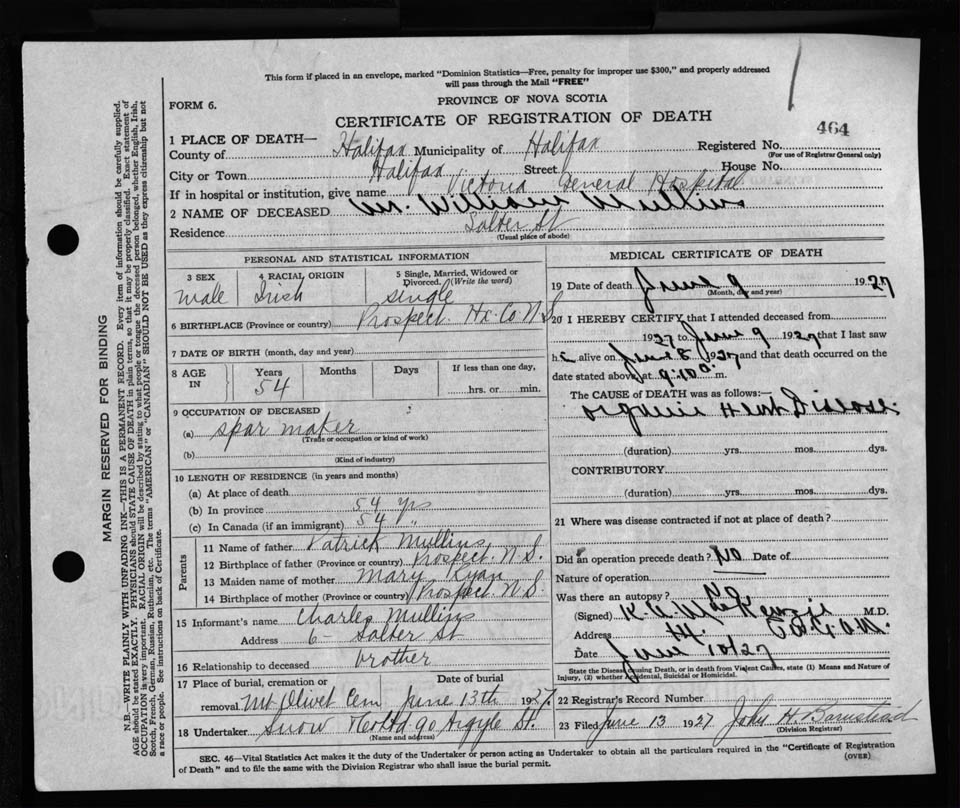 This form if placed in an envelope, marked "Dominion Statistics—Free, penalty for improper use $300," and properly addressed
will pass through the Mail "FREE"
FORM 6.
PROVINCE OF NOVA SCOTIA
CERTIFICATE OF REGISTRATION OF DEATH
464
1 PLACE OF DEATH—
County of Halifax Municipality of Halifax Registered No.
(For use of Registrar General only)
City or Town Halifax Street House No.
If in hospital or institution, give name Victoria General Hospital
2 NAME OF DECEASED Mr. William Mullins
Residence Salter St
(Usual place of abode)
PERSONAL AND STATISTICAL INFORMATION
3 SEX
male
4 RACIAL ORIGIN
Irish
5 Single, Married, Widowed or
Divorced. (Write the word)
single
6 BIRTHPLACE (Province or country) Prospect. Hx. Co N.S.
7 DATE OF BIRTH (month, day and year)
8 AGE IN
Years Months Days If less than one day,
54 hrs. or min.
9 OCCUPATION OF DECEASED
(a) spar maker
(Trade or occupation or kind of work)
(b)
(Kind of industry)
10 LENGTH OF RESIDENCE (in years and months)
(a) At place of death
(b) In province 54 yrs
(c) In Canada (if an immigrant) 54 "
Parents
11 Name of father Patrick Mullins
12 Birthplace of father (Province or country) Prospect N.S.
13 Maiden name of mother Mary Ryan
14 Birthplace of mother (Province or country) Prospect. N.S.
15 Informant's name Charles Mullins
Address 6 - Salter St
16 Relationship to deceased brother
17 Place of burial, cremation or Date of burial
removal Mt Olivet Cem June 13th 1927.
18 Undertaker Snow & Co Ltd. 90 Argyle St.
(Name and address)
MEDICAL CERTIFICATE OF DEATH
19 Date of death June 9 1927
(Month, day and year)
20 I HEREBY CERTIFY that I attended deceased from
1927 to June 9 1927 that I last saw
h alive on June 8 1927 and that death occurred on the
date stated above at 9:10 a. m.
The CAUSE of DEATH was as follows:—
Organic Heart Disease.
(duration) yrs. mos. dys.
CONTRIBUTORY
(duration) yrs. mos. dys.
21 Where was disease contracted if not at place of death?
Did an operation precede death? No Date of
Nature of operation
Was there an autopsy? No
(Signed) K. A. MacKenzie M.D.
Address
Date June 10/27
State the Disease causing Death, or in death from Violent Causes, state (1) Means and Nature of
Injury, (2) whether Accidental, Suicidal or Homicidal.
22 Registrar's Record Number
23 Filed June 13 1927 John H. Barnstead
(Division Registrar)
SEC. 46—Vital Statistics Act makes it the duty of the Undertaker or person acting as Undertaker to obtain all the particulars required in the "Certificate of Registration
of Death" and to file the same with the Division Registrar who shall issue the burial permit. (OVER)
MARGIN RESERVED FOR BINDING
N.B.—WRITE PLAINLY WITH UNFADING INK—THIS IS A PERMANENT RECORD. Every item of information should be carefully supplied.
AGE should be stated EXACTLY. PHYSICIANS should STATE CAUSE OF DEATH in plain terms, so that it may be properly classified. Exact statement of
OCCUPATION is very important. RACIAL ORIGIN will be described by stating to what people or tongue the deceased person belonged, whether English, Irish,
Scotch, French, German, Russian, Ruthenian, etc. The terms "AMERICAN" or "CANADIAN" SHOULD NOT BE USED as they express citizenship but not
a race or people. See instructions on back of Certificate.